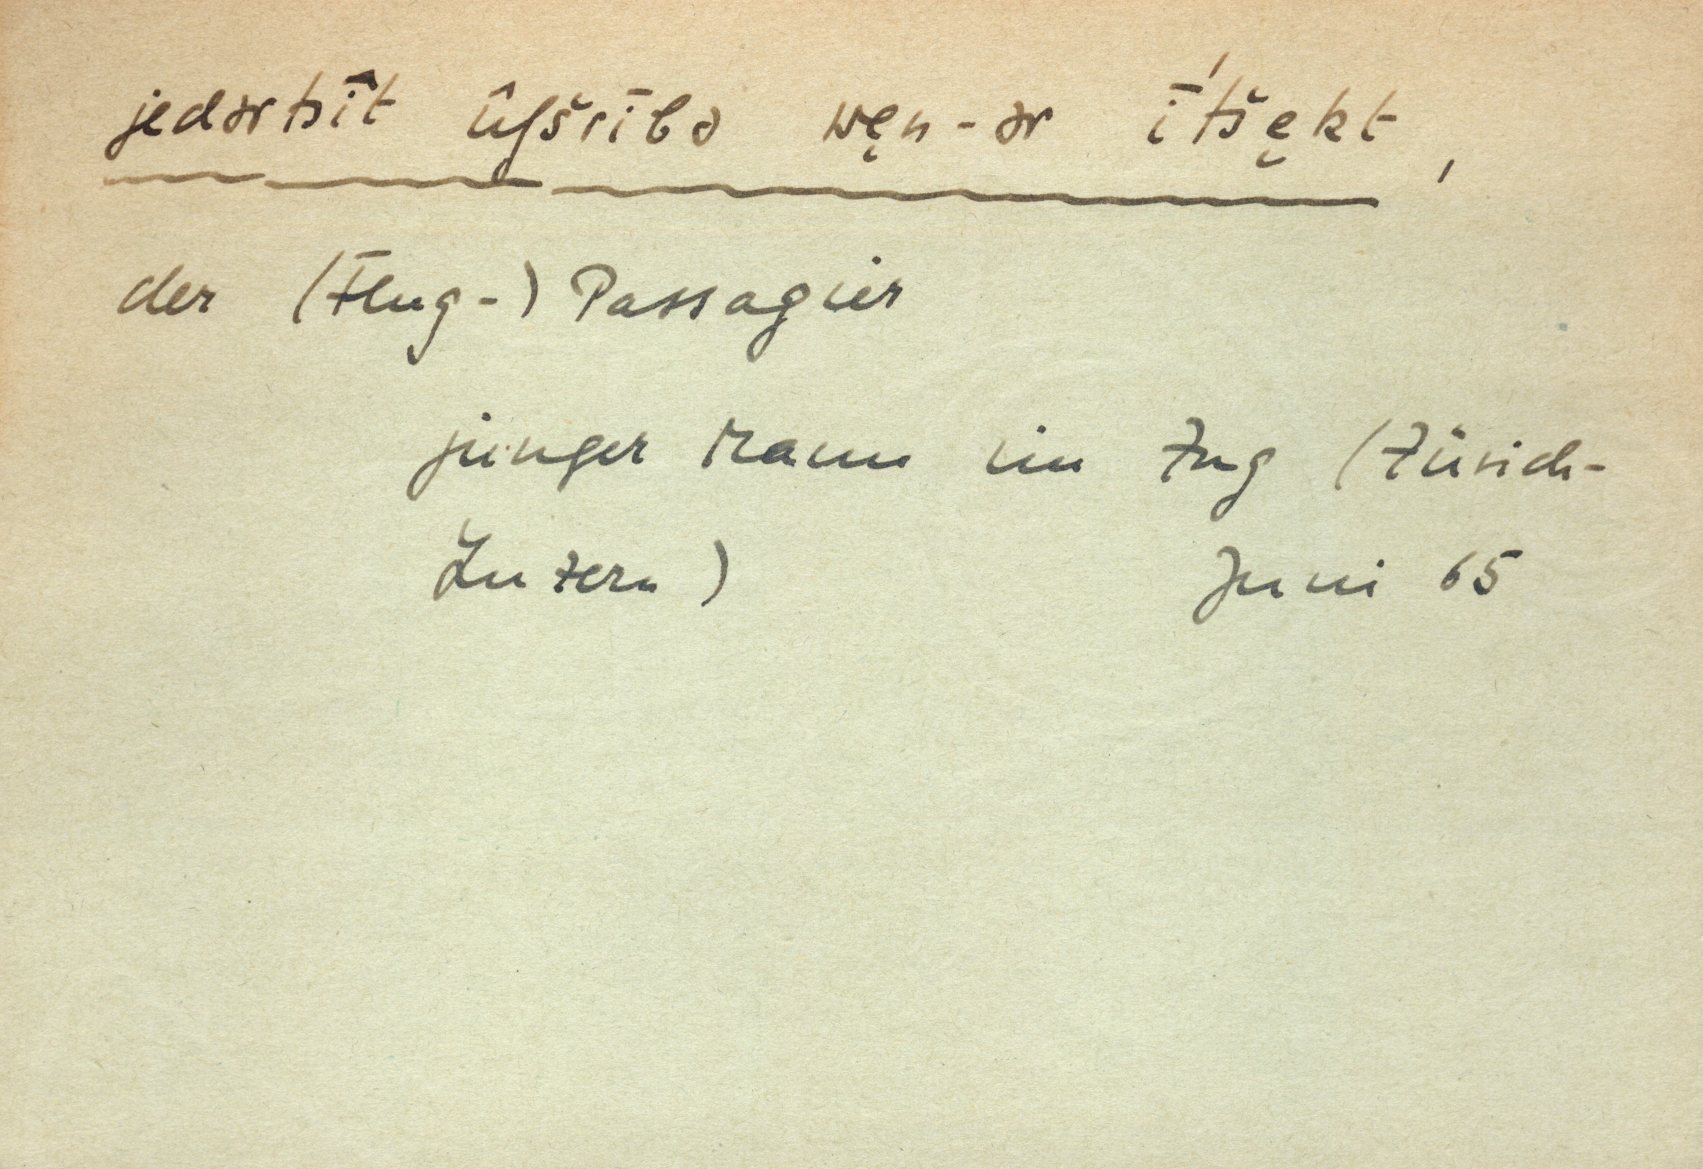 jedərtsīt ûfšrībə wę̄n-ər ī'tšękt,
der (Flug-) Passagier
junger Mann im Zug (Zürich-
Luzern) Juni 65